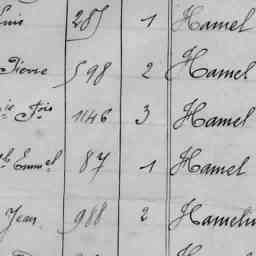 285 1 Hamel
Pierre 598 2 Hamel
1146 3 Hamel
87 1 Hamel
Jean 988 2 Hamelin